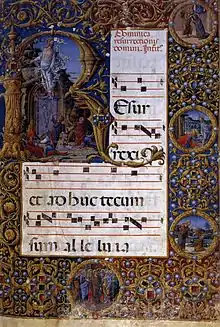 Dominica
resurrectionis
domini. Introit.
R
Esur
rexi
et ad huc tecum
sum al le lu ia